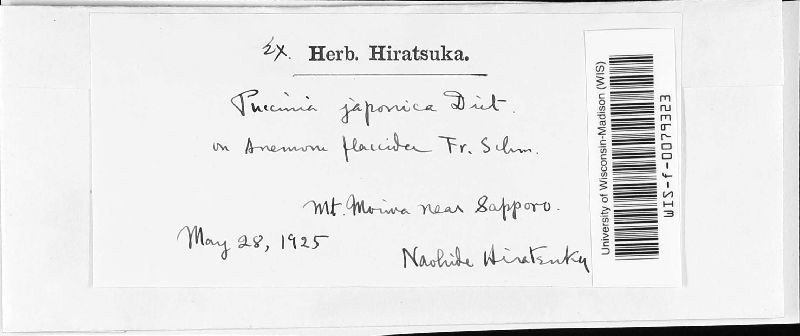 Ex. Herb. Hiratsuka.
Puccinia japonica Diet.
on Anemone flaccida Fr. Schm.
Mt. Moiwa near Sapporo.
May 28, 1925
Naohide Hiratsuka
University of Wisconsin-Madison (WIS)
WIS-f-0079323